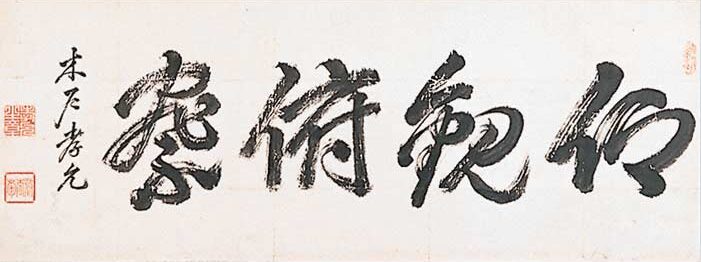 仰觀俯察
木戸孝允